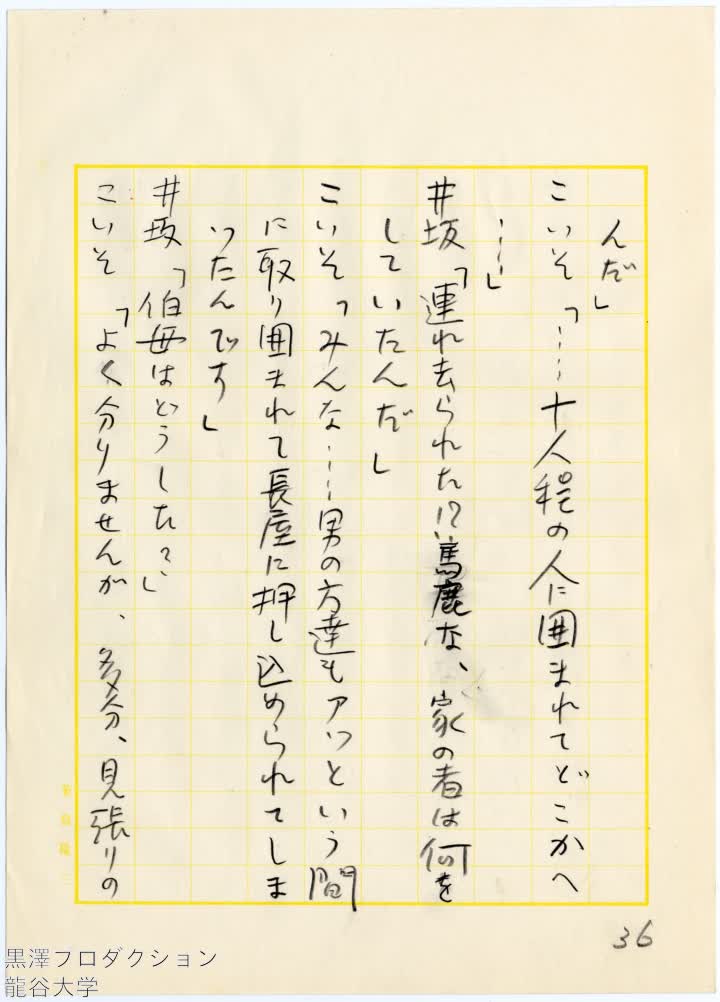 んだ」
こいそ「……十人程の人に囲まれてどこかへ
……」
井坂「連れ去られた!?馬鹿な、家の者は何を
していたんだ」
こいそ「みんな……男の方達もアッという間
に取り囲まれて長屋に押し込められてしま
ったんです」
井坂「伯母はどうした?」
こいそ「よく分りませんが、多分、見張りの
36
黒澤プロダクション
龍谷大学